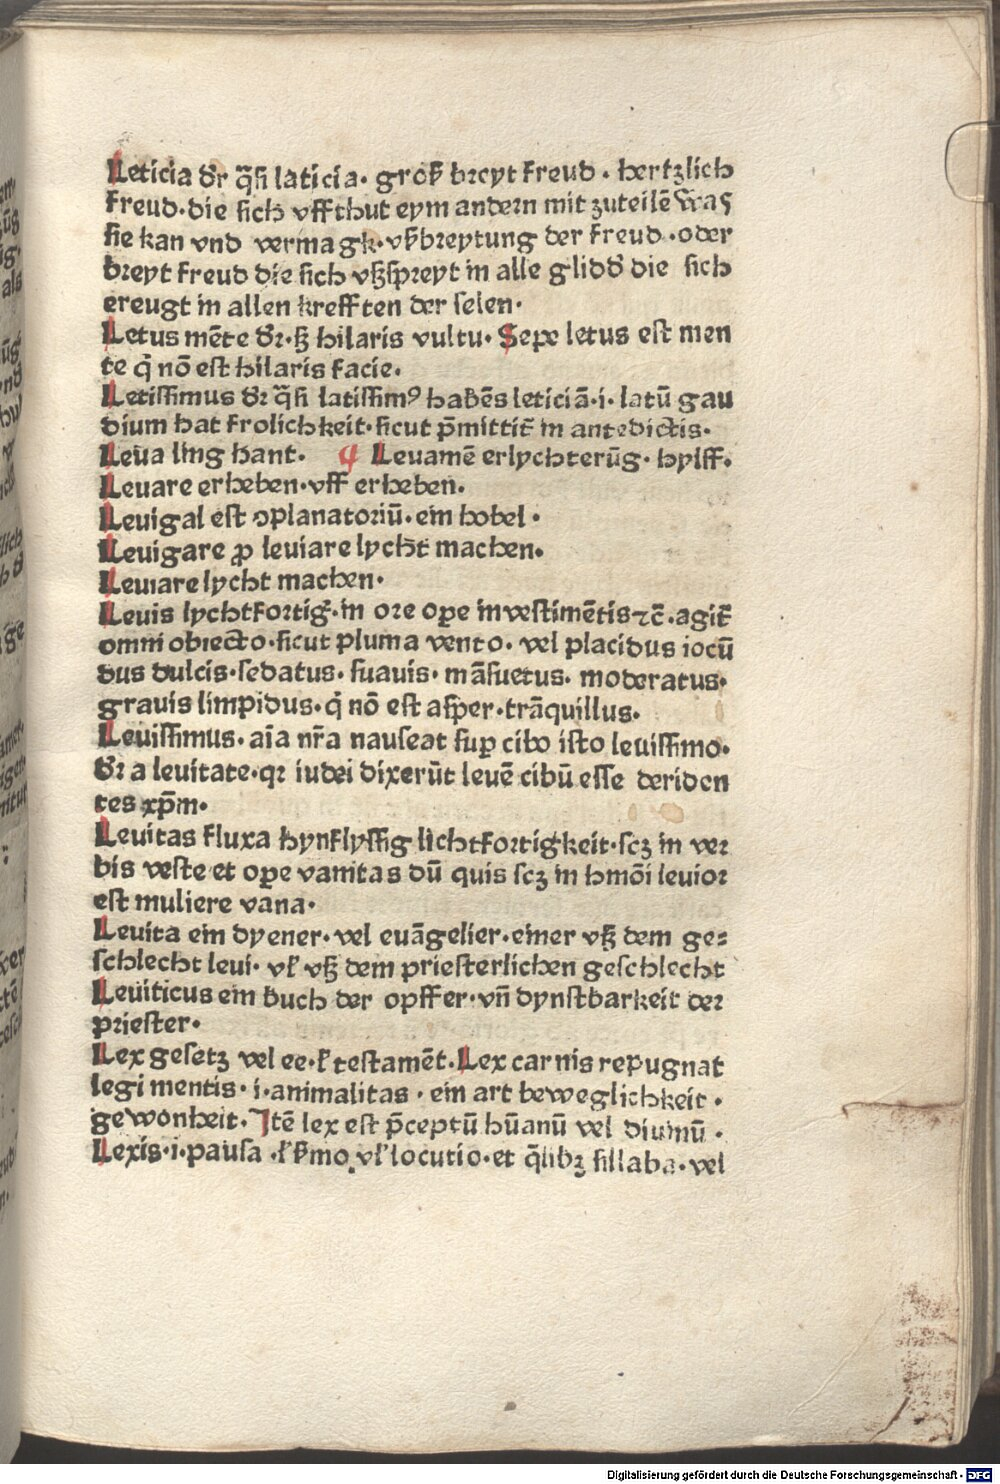 Leticia dr̄ q̄ſi laticia. groß breyt freud. hertzlich
freud. die ſich vffthut eym andern mit zuteilē was
ſie kan vnd vermagk. vßbreytung der freud. oder
breyt freud die ſich vßſpreyt in alle glidd̓ die ſich
ereugt in allen krefften der ſelen.
Letus mēte dr̄. ſꝫ hilaris vultu. Sepe letus eſt men
te q̇ nō eſt hilaris facie.
Letiſſimus dr̄ q̄ſi latiſſimꝰ habēs leticiā. i. latū gau
dium hat frolichkeit. ſicut p̄mittit̄ in antedictis.
Leua ling hant. ¶ Leuamē erlychterūg. hylff.
Leuare erheben. vff erheben.
Leuigal eſt ↄplanatoriū. ein hobel.
Leuigare ꝓ leuiare lycht machen.
Leuiare lycht machen.
Leuis lychtfortig̓. in ore oꝑe in veſtimētis ⁊c̄. agit̄
omni obiecto. ſicut pluma vento. vel placidus iocū
dus dulcis. ſedatus. ſuauis. māſuetus. moderatus.
grauis limpidus. q̇ nō eſt aſper. trāquillus.
Leuiſſimus. aīa nr̄a nauſeat ſuꝑ cibo iſto leuiſſimo.
dr̄ a leuitate. qꝛ iudei dixerūt leuē cibū eſſe deriden
tes xp̄m.
Leuitas fluxa hynflyſſig lichtfortigkeit. ſcꝫ in ver
bis veſte et oꝑe vanitas dū quis ſcꝫ in hmōi leuior
eſt muliere vana.
Leuita ein dyener. vel euāgelier. einer vß dem ge⸗
ſchlecht leui. vl̓ vß dem prieſterlichen geſchlecht
Leuiticus ein buch der opffer. vn̄ dynſtbarkeit der
prieſter.
Lex geſetz vel ee. l̓ teſtamēt. Lex carnis repugnat
legi mentis. i. animalitas. ein art beweglichkeit.
gewonheit. Itē lex eſt p̄ceptū hūanū vel diuinū.
Lexis. i. pauſa. l̓ ẜmo vl̓ locutio. et q̄libꝫ ſillaba. vel
Digitalisierung gefördert durch die Deutsche Forschungsgemeinschaft - DFG